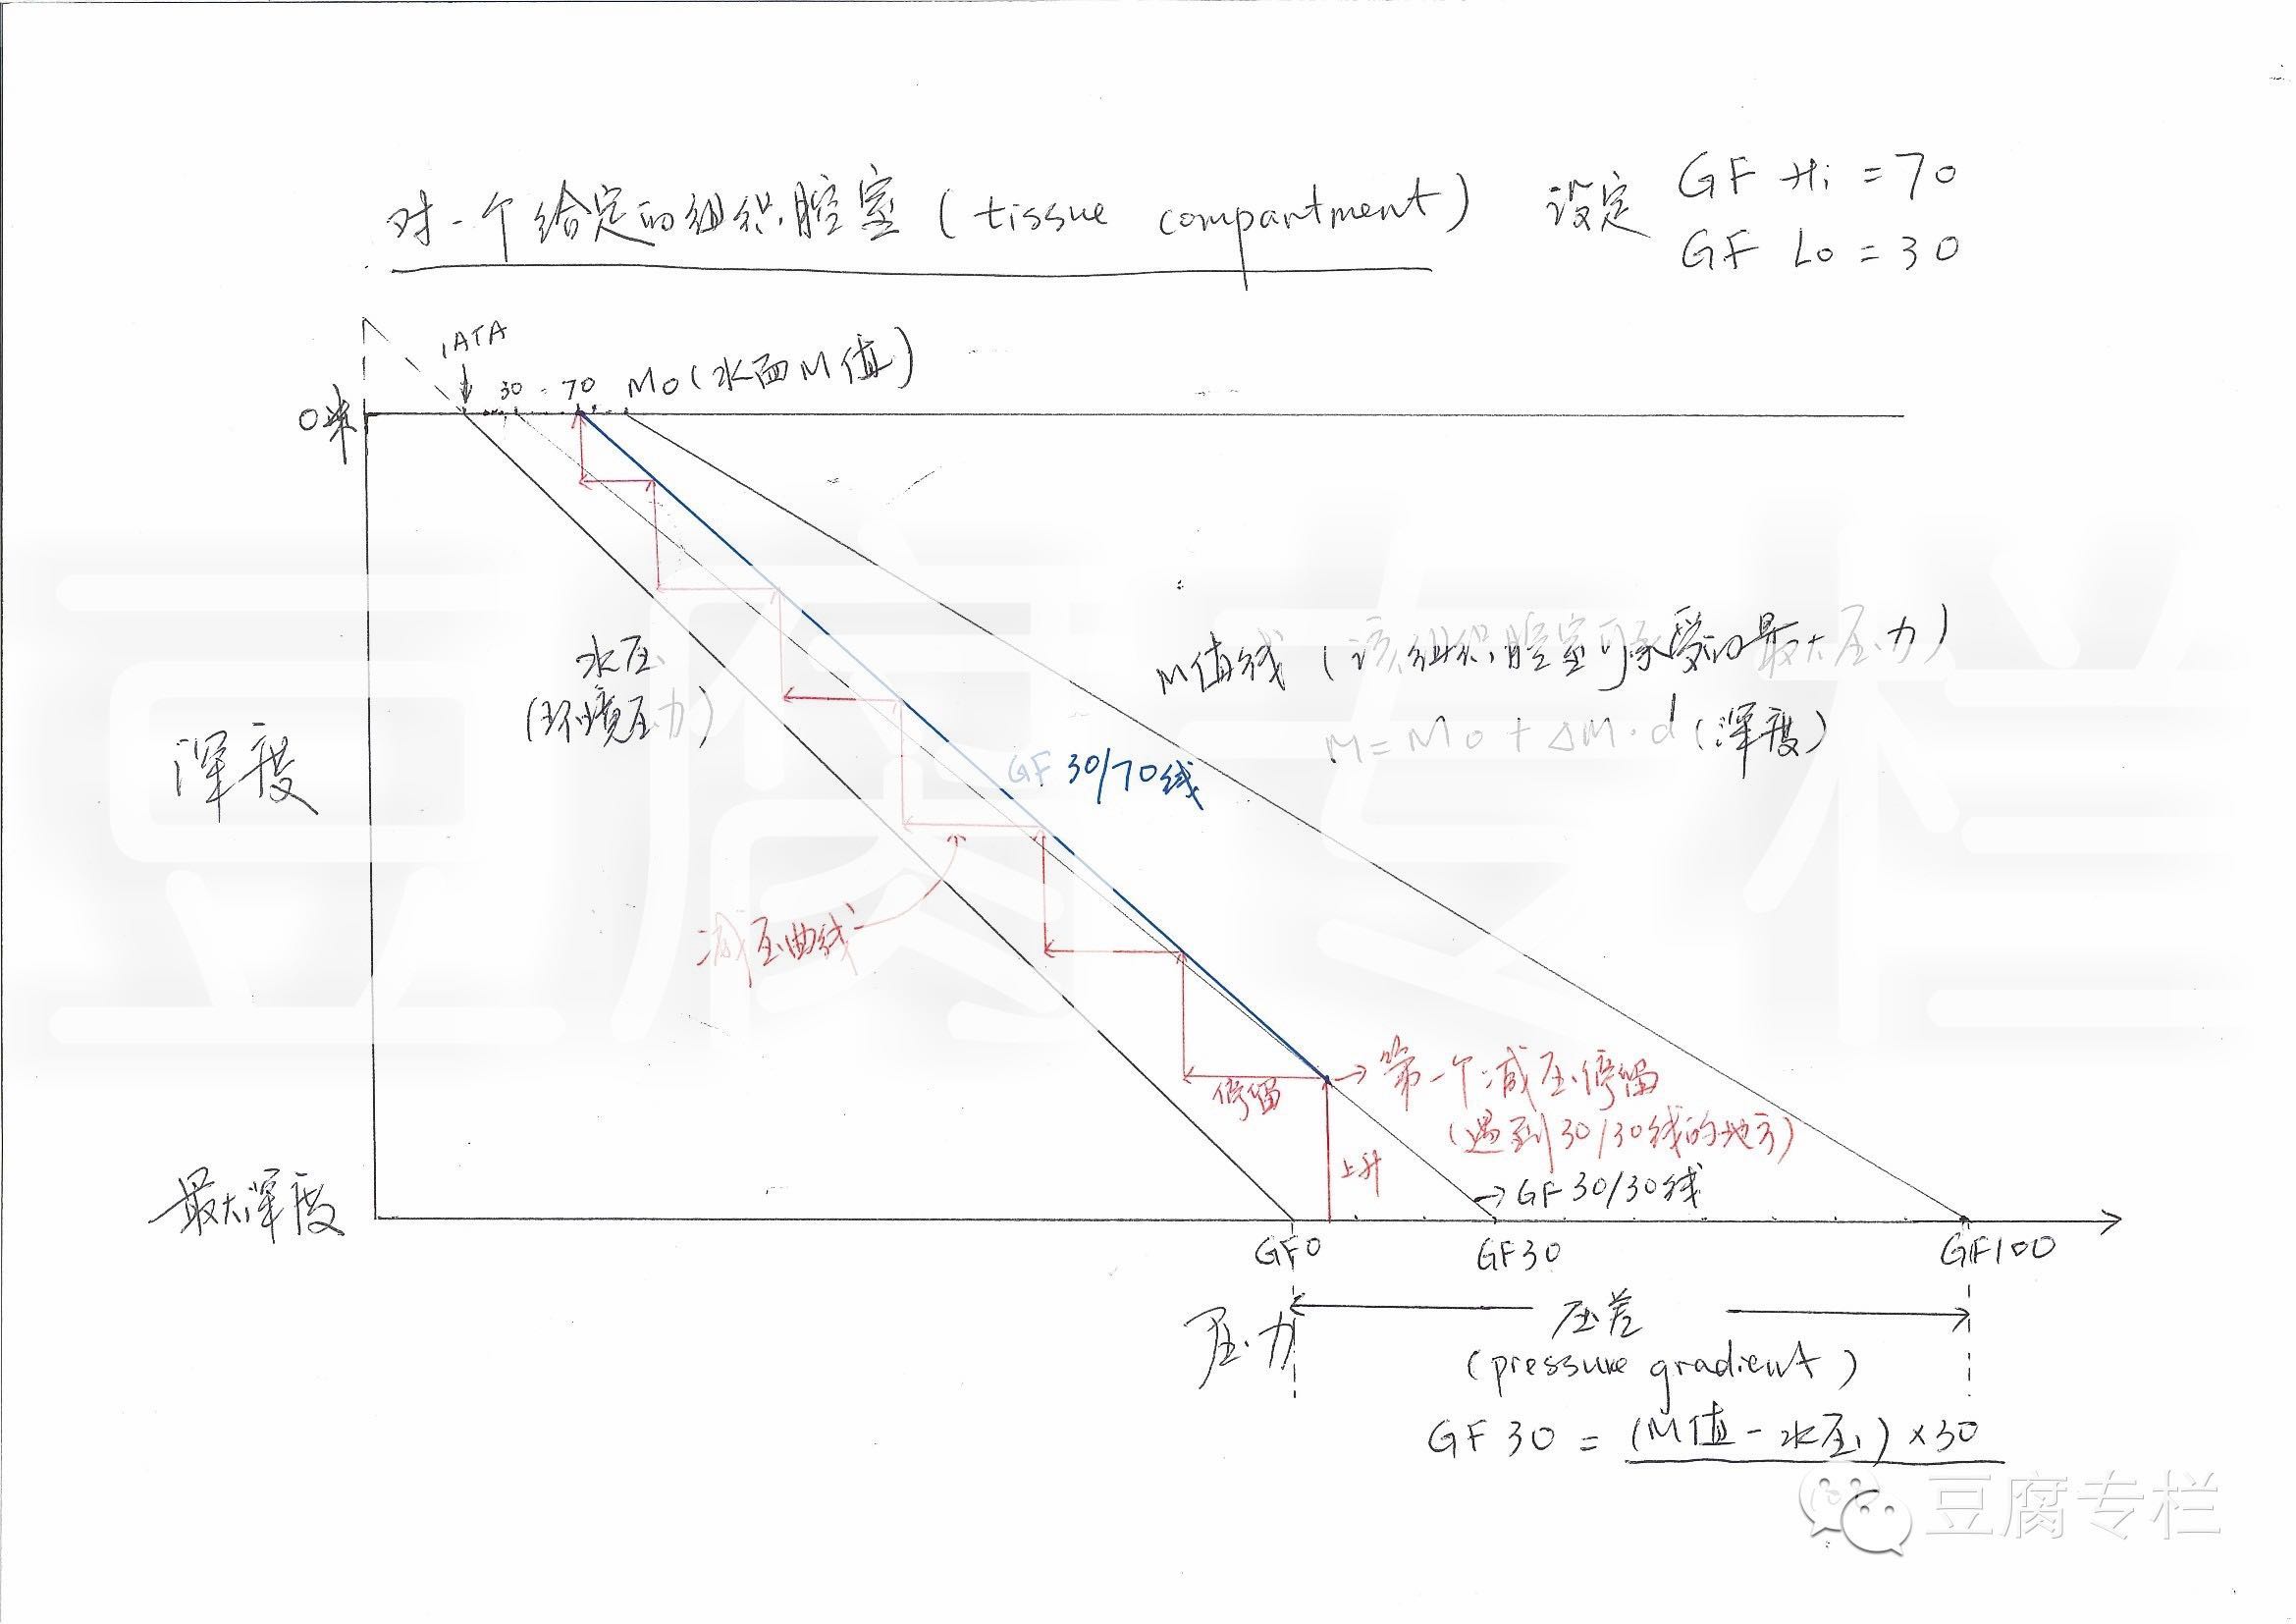 对一个给定的组织腔室 (tissue compartment) 设定 GF Hi = 70
GF Lo = 30
1ATA
30 70 M0 (水面M值)
0米
水压
(环境压力)
M值线 (该组织腔室可承受的最大压力)
M = M0 + ΔM·d (深度)
深度
GF 30/70线
减压曲线
→第一个减压停留
(遇到30/30线的地方)
停留
上升
→GF 30/30线
最大深度
GF0 GF30 GF100
压力
压差
(pressure gradient)
GF 30 = (M值 - 水压) × 30
豆腐专栏
豆腐专栏